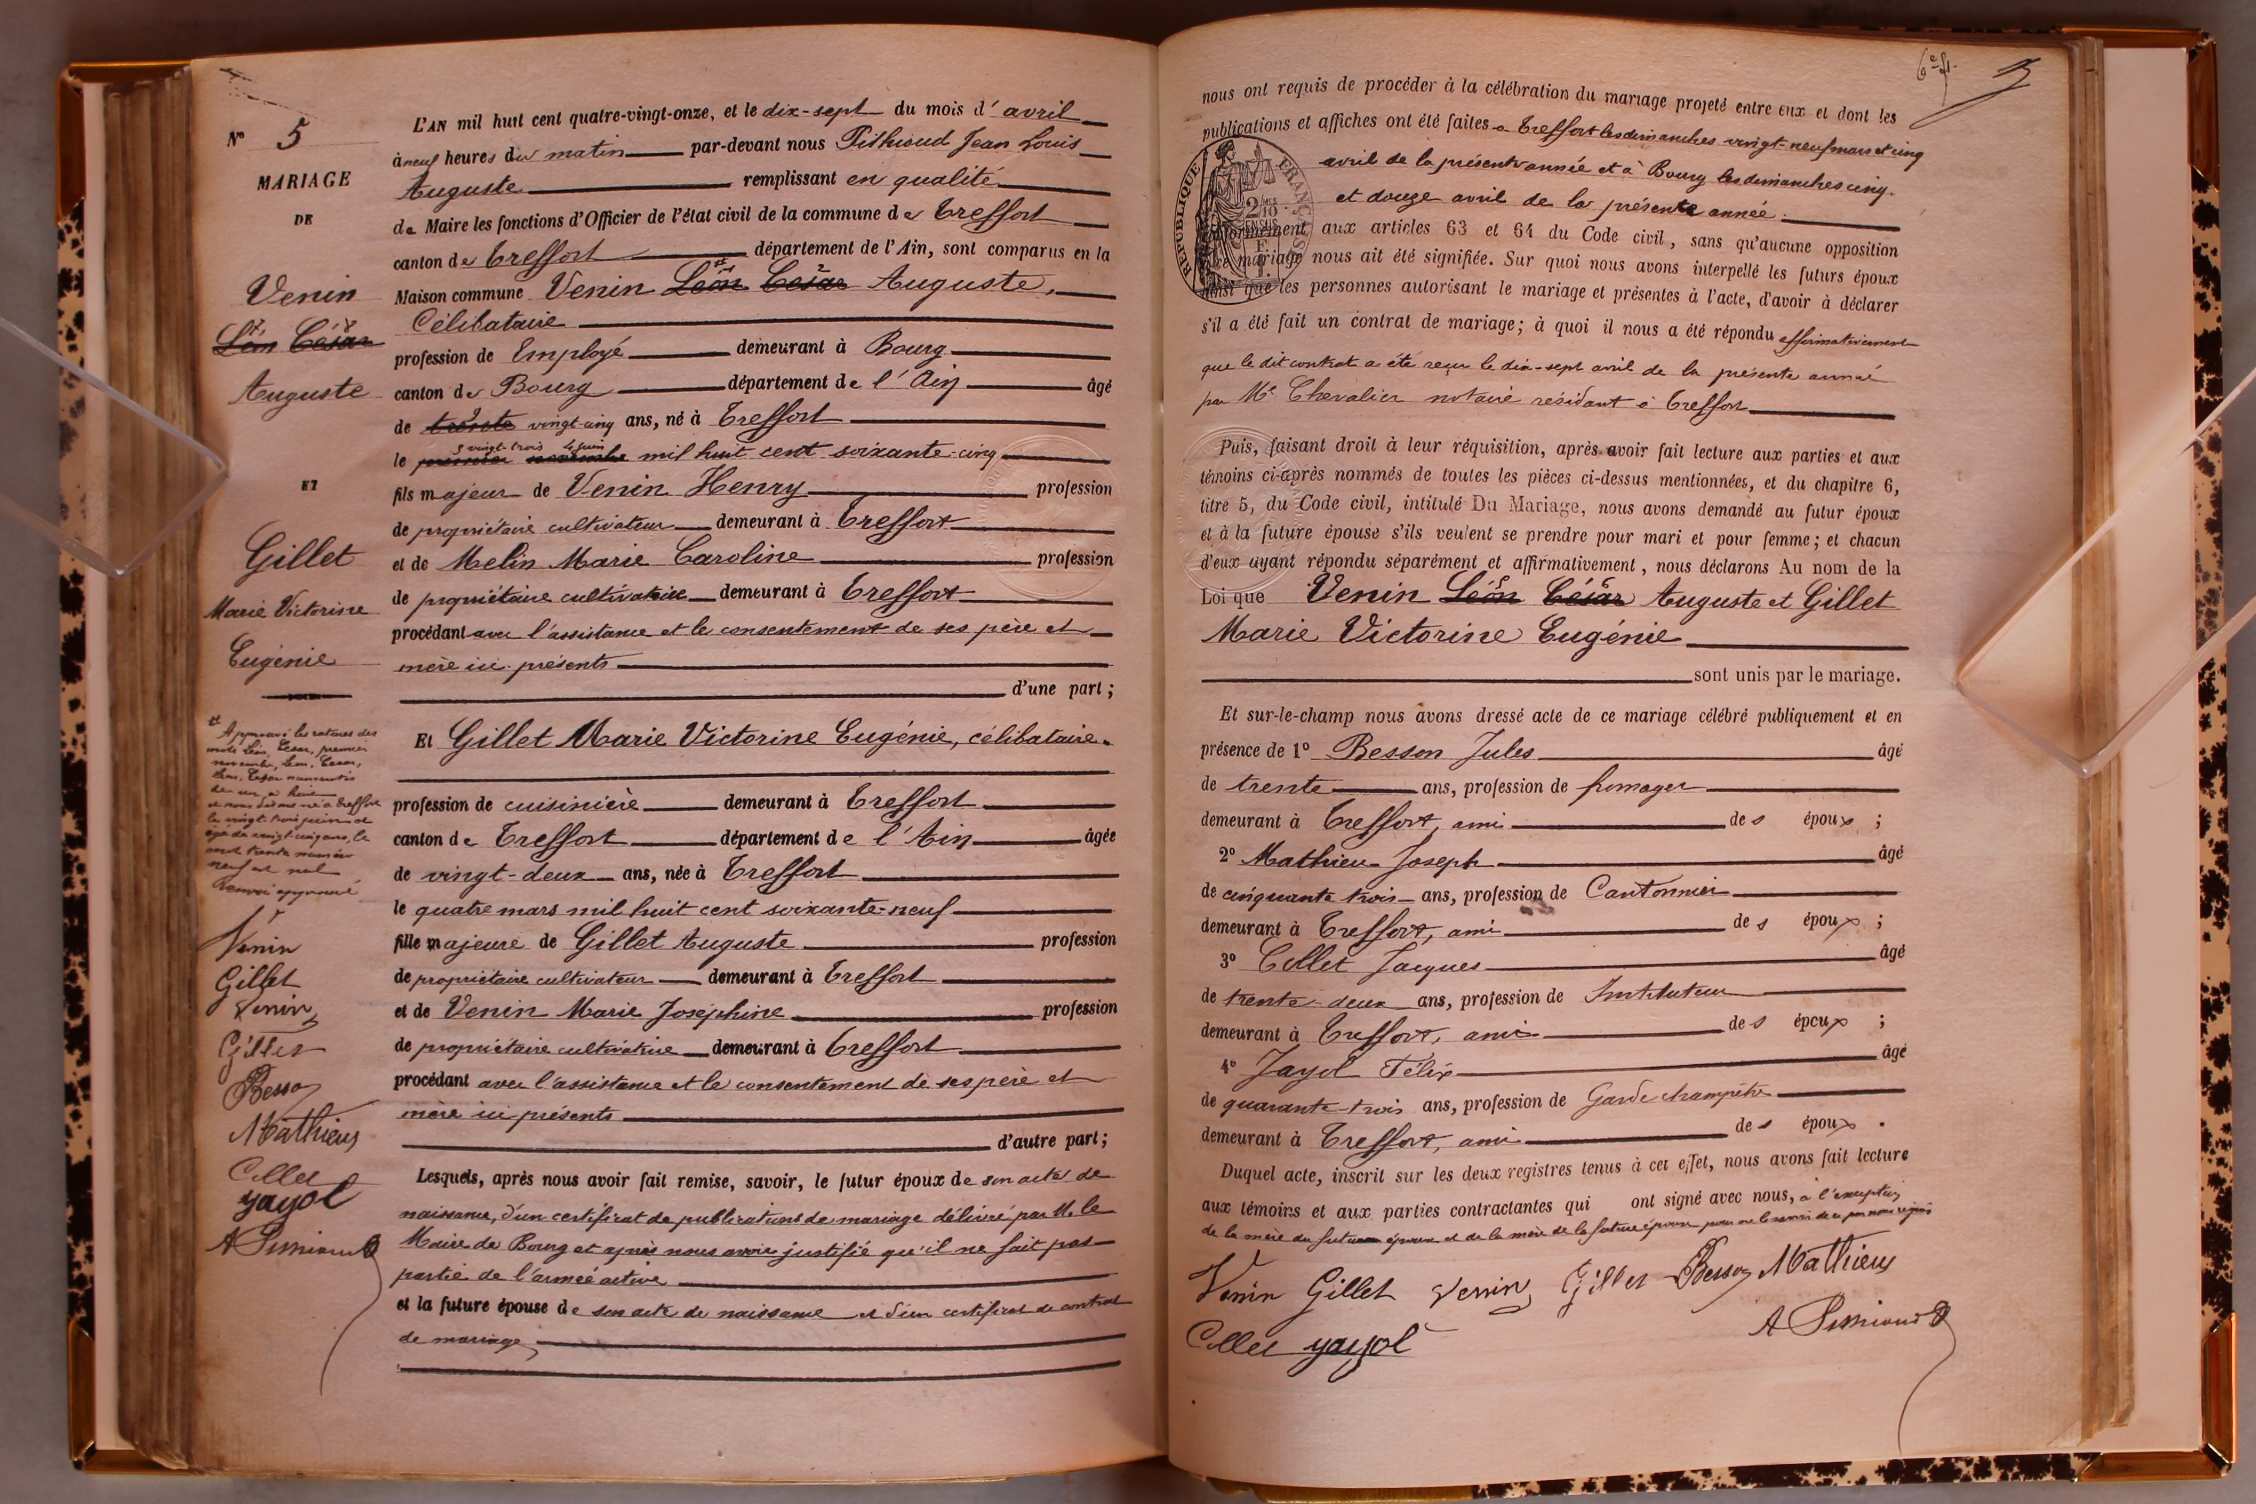 N° 5
MARIAGE
DE
Venin
Léon César
Auguste
ET
Gillet
Marie Victorine
Eugénie
Approuvé les ratures des
mots Léon, César, premier
novembre, Léon, César,
Léon, César numérotés
de un à huit
et nous disons né à Treffort
le vingt trois juin et
âgé de vingt cinq ans, le
mot trente numéro
neuf est nul
Renvoi approuvé
Venin
Gillet
Venin
Gillet
Besson
Mathieu
Collet
Jayol
L'AN mil huit cent quatre-vingt-onze, et le dix-sept du mois d'avril
à neuf heures du matin par-devant nous Jean Louis
Auguste remplissant en qualité
de Maire les fonctions d'Officier de l'état civil de la commune de Treffort
canton de Treffort département de l'Ain, sont comparus en la
Maison commune Venin Léon César Auguste,
Célibataire
profession de Employé demeurant à Bourg
canton de Bourg département de l'Ain âgé
de trente vingt-cinq ans, né à Treffort
vingt-trois juin
le premier novembre mil huit cent soixante-cinq
fils majeur de Venin Henry profession
de propriétaire cultivateur demeurant à Treffort
et de Melin Marie Caroline profession
de propriétaire cultivatrice demeurant à Treffort
procédant avec l'assistance et le consentement de ses père et
mère ici présents
d'une part ;
Et Gillet Marie Victorine Eugénie, célibataire
profession de cuisinière demeurant à Treffort
canton de Treffort département de l'Ain âgée
de vingt-deux ans, née à Treffort
le quatre mars mil huit cent soixante-neuf
fille majeure de Gillet Auguste profession
de propriétaire cultivateur demeurant à Treffort
et de Venin Marie Joséphine profession
de propriétaire cultivatrice demeurant à Treffort
procédant avec l'assistance et le consentement de ses père et
mère ici présents
d'autre part ;
Lesquels, après nous avoir fait remise, savoir, le futur époux de son acte de
naissance, d'un certificat de publications de mariage délivré par M. le
Maire de Bourg et après nous avoir justifié qu'il ne fait pas
partie de l'armée active
et la future épouse de son acte de naissance et d'un certificat de contrat
de mariage
nous ont requis de procéder à la célébration du mariage projeté entre eux et dont les
publications et affiches ont été faites à Treffort les dimanches vingt-neuf mars et cinq
avril de la présente année et à Bourg les dimanches cinq
et douze avril de la présente année.
RÉPUBLIQUE FRANÇAISE
conformément aux articles 63 et 64 du Code civil, sans qu'aucune opposition
à ce mariage nous ait été signifiée. Sur quoi nous avons interpellé les futurs époux
ainsi que les personnes autorisant le mariage et présentes à l'acte, d'avoir à déclarer
s'il a été fait un contrat de mariage ; à quoi il nous a été répondu affirmativement
que le dit contrat a été reçu le dix-sept avril de la présente année
par Me Chevalier notaire résidant à Treffort
Puis, faisant droit à leur réquisition, après avoir fait lecture aux parties et aux
témoins ci-après nommés de toutes les pièces ci-dessus mentionnées, et du chapitre 6,
titre 5, du Code civil, intitulé Du Mariage, nous avons demandé au futur époux
et à la future épouse s'ils veulent se prendre pour mari et pour femme ; et chacun
d'eux ayant répondu séparément et affirmativement, nous déclarons Au nom de la
Loi que Venin Léon César Auguste et Gillet
Marie Victorine Eugénie
sont unis par le mariage.
Et sur-le-champ nous avons dressé acte de ce mariage célébré publiquement et en
présence de 1° Besson Jules âgé
de trente ans, profession de fromager
demeurant à Treffort, ami des époux ;
2° Mathieu Joseph âgé
de cinquante trois ans, profession de Cantonnier
demeurant à Treffort, ami des époux ;
3° Collet Jacques âgé
de trente-deux ans, profession de Instituteur
demeurant à Treffort, ami des époux ;
4° Jayol Félix âgé
de quarante-trois ans, profession de Garde champêtre
demeurant à Treffort, ami des époux.
Duquel acte, inscrit sur les deux registres tenus à cet effet, nous avons fait lecture
aux témoins et aux parties contractantes qui ont signé avec nous, à l'exception
de la mère du futur époux et de la mère de la future épouse pour ne le savoir de ce par nous requis
Venin Gillet Venin Gillet Besson Mathieu
Collet Jayol